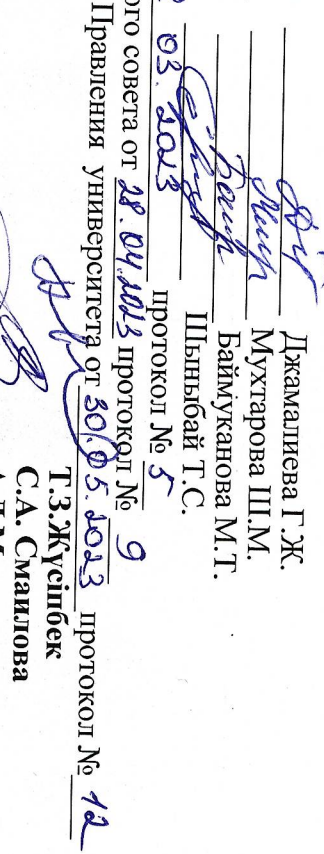 Джамалиева Г.Ж.
Мухтарова Ш.М.
Баймуканова М.Т.
Шыныбай Т.С.
03. 2023 протокол № 5
ого совета от 28.04.2023 протокол № 9
Правления университета от 30.05.2023 протокол № 12
Т.З.Жүсіпбек
С.А. Смаилова